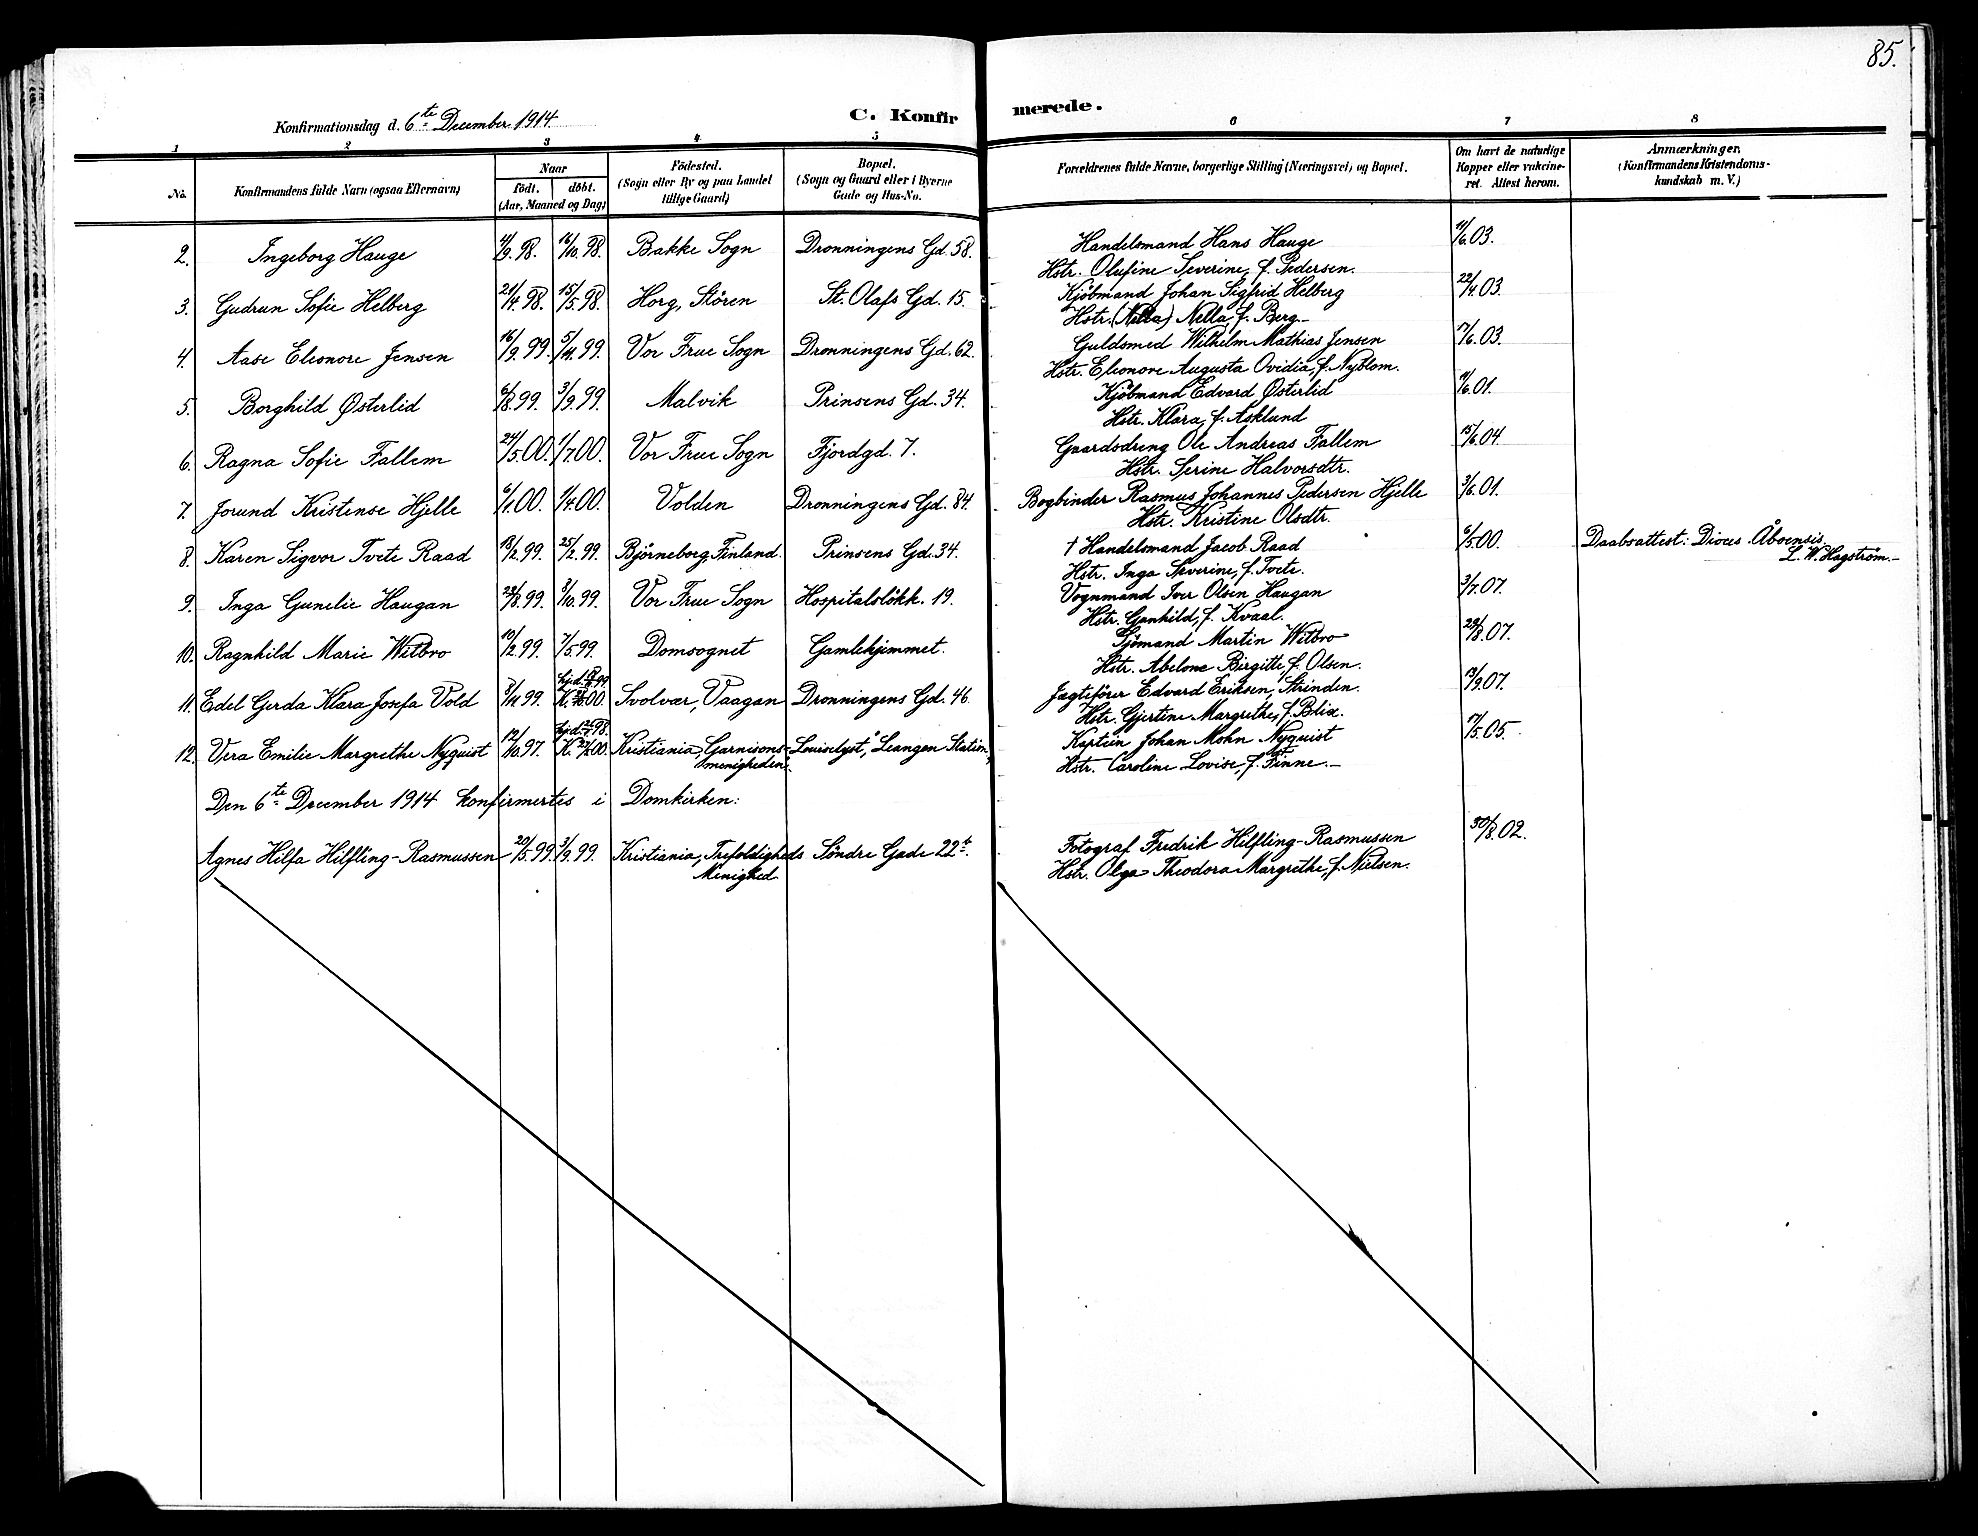 85.
Konfirmationsdag d. 6te December 1914.
C. Konfirmerede.
1 2 3 4 5 6 7 8
No.
Konfirmandens fulde Navn (ogsaa Efternavn)
Naar
födt. döbt.
(Aar, Maaned og Dag)
Födested.
(Sogn eller By og paa Landet
tillige Gaard)
Bopæl.
(Sogn og Gaard eller i Byerne
Gade og Hus-No.
Forældrenes fulde Navne, borgerlige Stilling (Næringsvei) og Bopæl.
Om havt de naturlige
Kopper eller vakcine-
ret. Attest herom.
Anmærkninger.
(Konfirmandens Kristendoms-
kundskab m. V.)
2. Ingeborg Hauge 4/9.98. 16/10.98. Bakke Sogn Dronningens Gd. 58. Handelsmand Hans Hauge 11/6.03.
Hstr. Olufine Severine, f. Pedersen.
3. Gudrun Sofie Helberg 21/4.98. 15/5.98. Horg, Stören St. Olafs Gd. 15. Kjöbmand Johan Sigfrid Helberg 22/4.03.
Hstr. (Nella) Nella, f. Berg.
4. Aase Eleonore Jensen 16/9.99. 5/11.99. Vor Frue Sogn Dronningens Gd. 62. Guldsmed Wilhelm Mathias Jensen 17/6.03.
Hstr. Eleonore Augusta Ovidia, f. Nyblom.
5. Borghild Østerlid 6/8.99. 3/9.99. Malvik Prinsens Gd. 34. Kjöbmand Edvard Østerlid 11/6.01.
Hstr. Klara, f. Asklund
6. Ragna Sofie Fallem 24/5.00. 1/7.00. Vor Frue Sogn Fjordgd. 7. Gaardsdreng Ole Andreas Fallem 15/6.04
Hstr. Serine Halvorsdtr.
7. Jorund Kristense Hjelle 6/1.00. 1/4.00. Volden Dronningens Gd. 84. Bogbinder Rasmus Johannes Pedersen Hjelle 3/6.01.
Hstr. Kristine Olsdtr.
8. Karen Sigvor Tvete Raad 13/2.99. 25/2.99. Björneborg, Finland. Prinsens Gd. 34. † Handelsmand Jacob Raad 6/5.00. Daabsattest: Dioces Åboensis.
L. W. Hagström.
Hstr. Inga Severine, f. Tvete.
9. Inga Gunelie Haugan 28/8.99. 8/10.99. Vor Frue Sogn Hospitalslökk. 19. Vognmand Iver Olsen Haugan 3/7.07.
Hstr. Gunhild, f. Kvaal.
10. Ragnhild Marie Witbro 19/2.99. 7/5.99. Domsognet Gamlehjemmet. Sjömand Martin Witbro 28/8.07.
Hstr. Abelone Birgitte, f. Olsen.
11. Edel Gerda Klara Josefa Vold 3/11.99. Svolvær, Vaagan Dronningens Gd. 46. Jægtefører Edvard Eriksen, Strinden. 13/9.07.
Hstr. Gjertine Margrethe, f. Blix.
12. Vera Emilie Margrethe Nyquist 12/10.97. Kristiania, Garnisons- "Louiselyst", Leangen Station. Kaptein Johan Mohn Nyquist 17/5.05.
menigheden.
Hstr. Caroline Lovise, f. Finne.
Den 6te December 1914 konfirmertes i Domkirken:
Agnes Hilfa Hilfling-Rasmussen 20/5.99. 3/9.99. Kristiania, Trefoldigheds Söndre Gade 22b. Fotograf Fredrik Hilfling-Rasmussen 30/8.02.
Menighed
Hstr. Olga Theodora Margrethe, f. Nielsen.